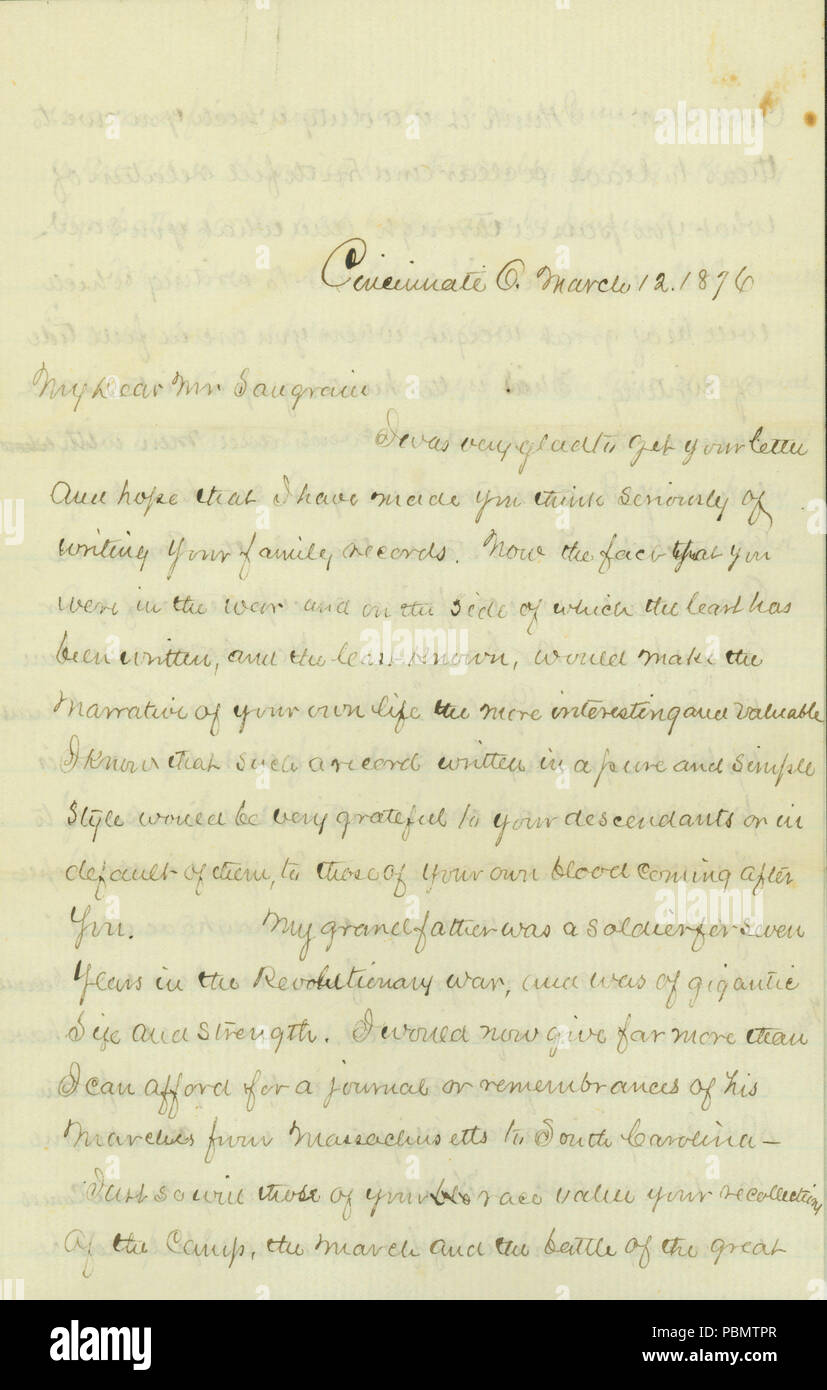 Cincinnati O. March 12. 1876
My Dear Mr Saugrain
I was very glad to get your letter
and hope that I have made you think seriously of
writing your family records. Now the fact that you
were in the war and on the side of which the least has
been written, and the least known, would make the
narrative of your own life the more interesting and valuable
I know that such a record written in a pure and simple
style would be very grateful to your descendants or in
default of them, to those of your own blood coming after
you. My grandfather was a soldier for seven
years in the Revolutionary war, and was of gigantic
size and strength. I would now give far more than
I can afford for a journal or remembrances of his
marches from Massachusetts to South Carolina—
Just so will those of your race value your recollections
of the camp, the march and the battle of the great
alamy
alamy
Image ID: PBMTPR
www.alamy.com